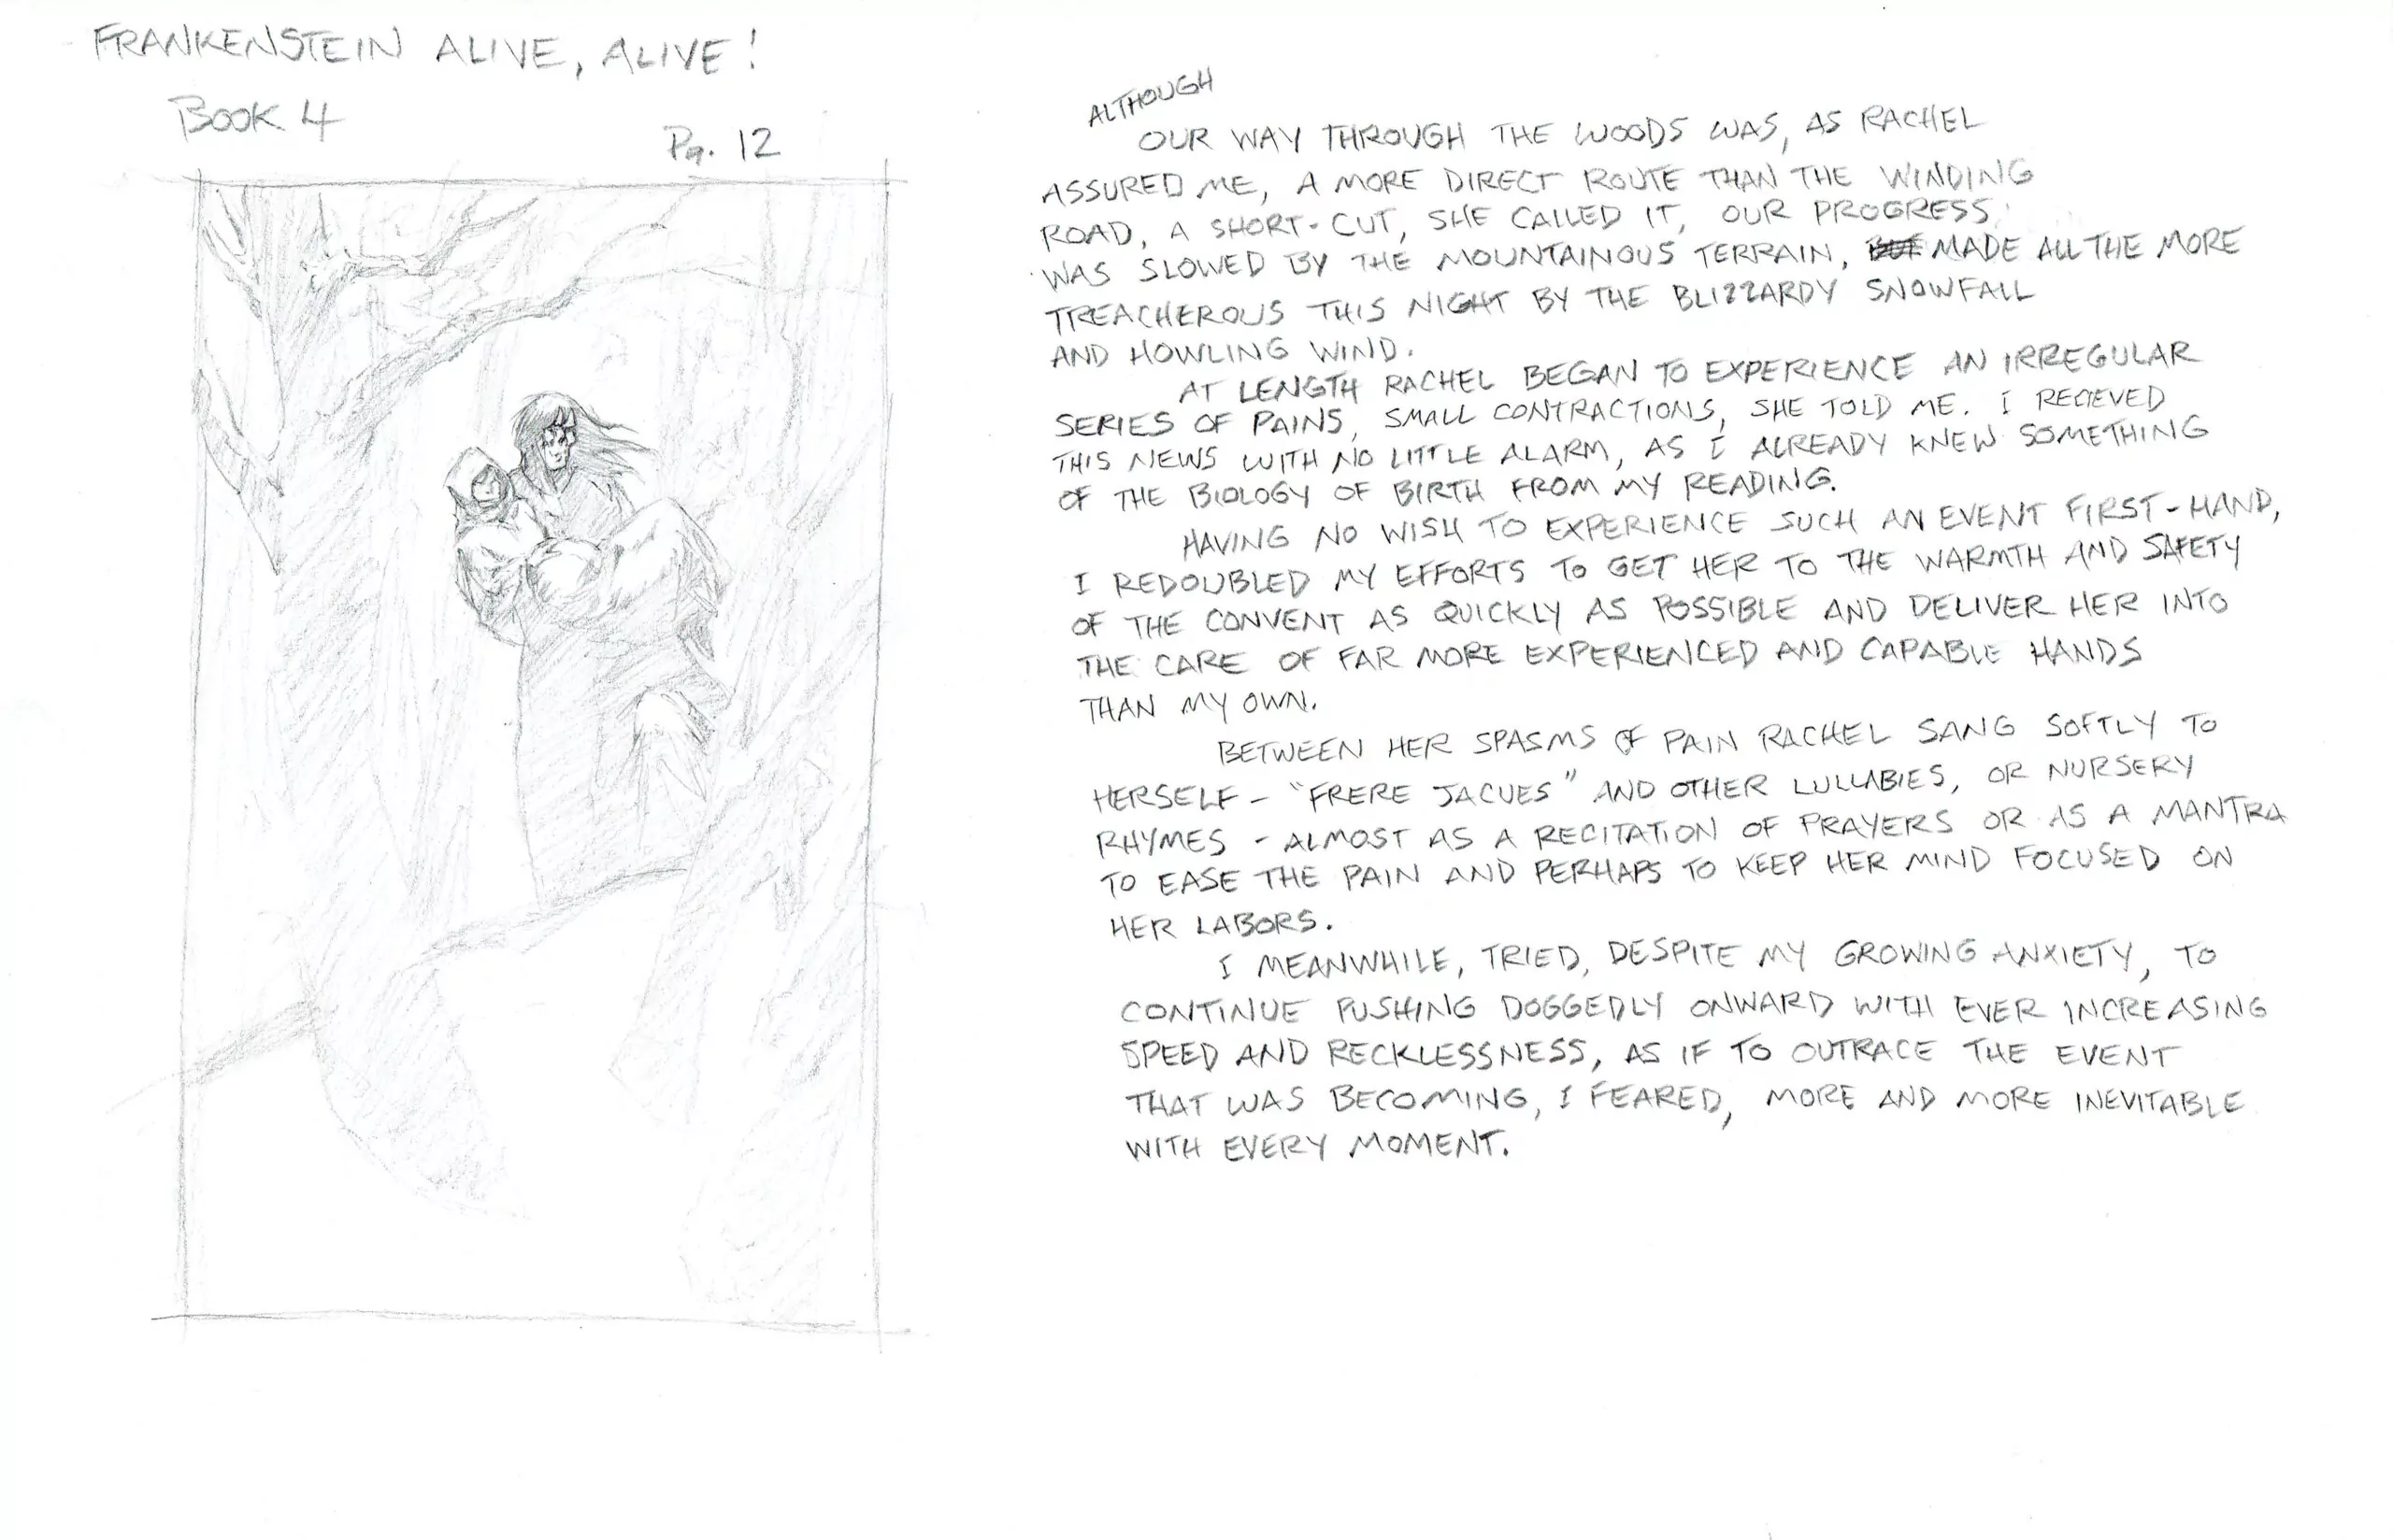 FRANKENSTEIN ALIVE, ALIVE!
BOOK 4
Pg. 12
ALTHOUGH
OUR WAY THROUGH THE WOODS WAS, AS RACHEL
ASSURED ME, A MORE DIRECT ROUTE THAN THE WINDING
ROAD, A SHORT-CUT, SHE CALLED IT, OUR PROGRESS
WAS SLOWED BY THE MOUNTAINOUS TERRAIN, MADE ALL THE MORE
TREACHEROUS THIS NIGHT BY THE BLIZZARDY SNOWFALL
AND HOWLING WIND.
AT LENGTH RACHEL BEGAN TO EXPERIENCE AN IRREGULAR
SERIES OF PAINS, SMALL CONTRACTIONS, SHE TOLD ME. I RECIEVED
THIS NEWS WITH NO LITTLE ALARM, AS I ALREADY KNEW SOMETHING
OF THE BIOLOGY OF BIRTH FROM MY READING.
HAVING NO WISH TO EXPERIENCE SUCH AN EVENT FIRST-HAND,
I REDOUBLED MY EFFORTS TO GET HER TO THE WARMTH AND SAFETY
OF THE CONVENT AS QUICKLY AS POSSIBLE AND DELIVER HER INTO
THE CARE OF FAR MORE EXPERIENCED AND CAPABLE HANDS
THAN MY OWN.
BETWEEN HER SPASMS OF PAIN RACHEL SANG SOFTLY TO
HERSELF - "FRERE JACUES" AND OTHER LULLABIES, OR NURSERY
RHYMES - ALMOST AS A RECITATION OF PRAYERS OR AS A MANTRA
TO EASE THE PAIN AND PERHAPS TO KEEP HER MIND FOCUSED ON
HER LABORS.
I MEANWHILE, TRIED, DESPITE MY GROWING ANXIETY, TO
CONTINUE PUSHING DOGGEDLY ONWARD WITH EVER INCREASING
SPEED AND RECKLESSNESS, AS IF TO OUTRACE THE EVENT
THAT WAS BECOMING, I FEARED, MORE AND MORE INEVITABLE
WITH EVERY MOMENT.